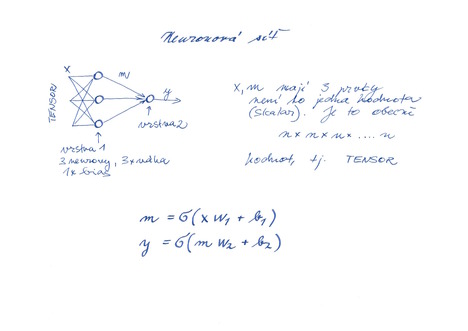 Neuronová síť
x
m
y
TENSOR
vrstva 2
vrstva 1
3 neurony, 3 x váha
1 x bias
x, m mají 3 prvky
není to jedna hodnota
(skalar). Je to obecně
n x n x n x .... n
hodnot, tj. TENSOR
m = σ(x w₁ + b₁)
y = σ(m w₂ + b₂)